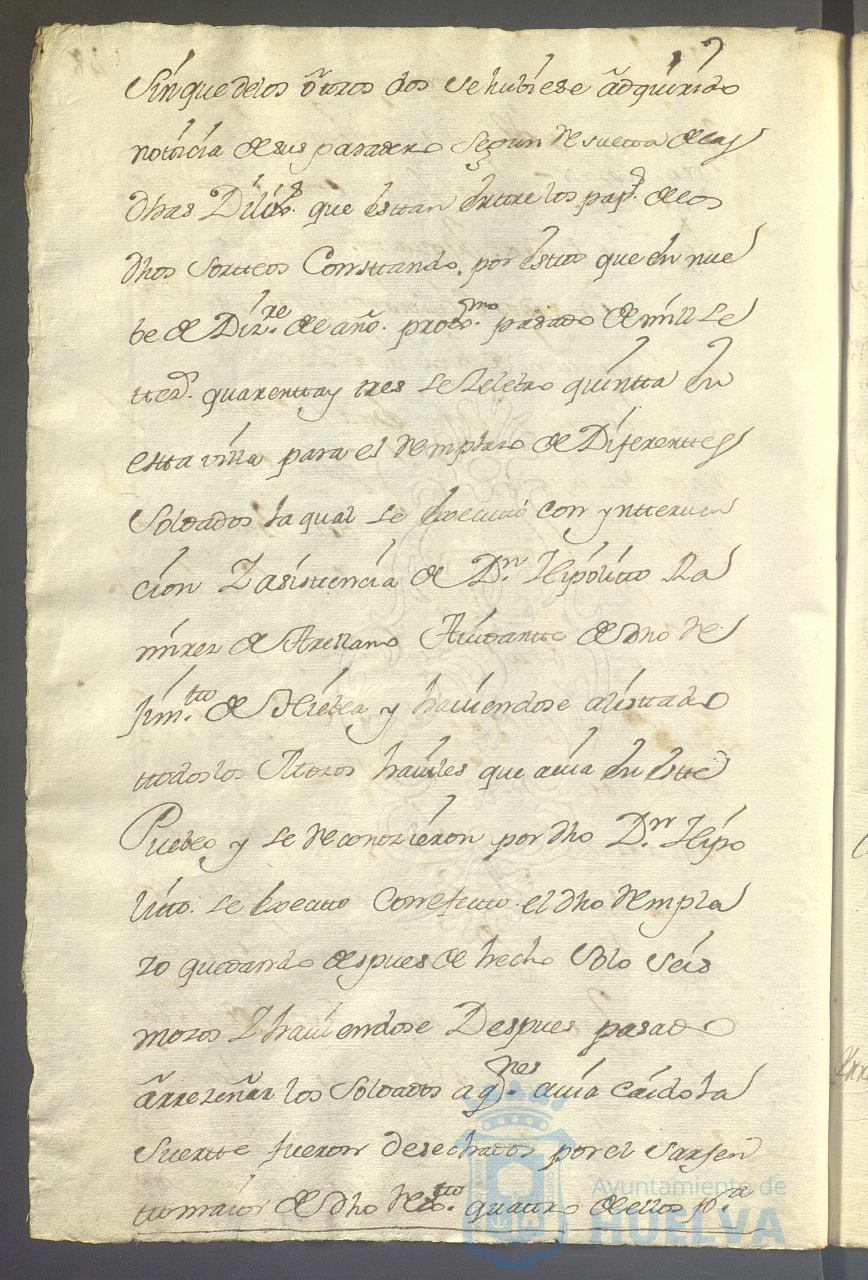 Sin que de los otros dos se hubiese adquirido
noticia de su paradero segun resulta de las
dhas Dilix.s que esttan enttre los pap.s de los
dhos sortteos Consttando, por esttos que en nue
be de Diz.re de año. proxs.mo pasado de mill se
ttez.s quarentta y tres se zelebro quintta en
estta villa para el remplazo de Diferenttes
Soldados la qual se execuio con ynttervenc
cion Y asistencia de D.n Hipolitto Ra
mirez de Arellano Aiudantte de dho Re
Jim.tto de Niebla y haviendose alisttado
ttodos los Mozos haviles que avia en estte
Pueblo y se reconozieron por dho D.n Hipo
litto. se execuuto Con efectto el dho rempla
zo quedando despues de hecho solo seis
mozos Y haviendose Despues pasado
a rreseñar los Soldados a q.nes avia Caido la
suertte fueron desechados por el sarjen
tto maior de dho Re.tto quattro de ellos p.a
Ayuntamiento de
HUELVA